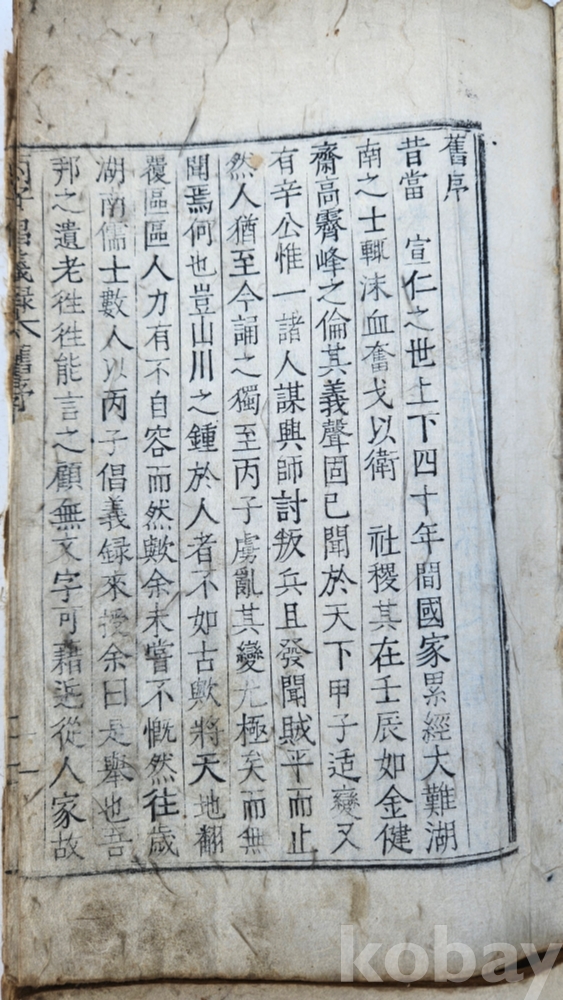 舊序
昔當 宣仁之世上下四十年間國家累經大難湖
南之士輒沫血奮戈以衛 社稷其在壬辰如金健
齋高霽峰之倫其義聲固已聞於天下甲子适變又
有辛公惟一諸人謀興師討叛兵且發聞賊平而止
然人猶至今誦之獨至丙子虜亂其變尤極矣而無
聞焉何也豈山川之鍾於人者不如古歟將天地翻
覆區區人力有不自容而然歟余未嘗不慨然往歲
湖南儒士數人以丙子倡義録來授余曰是擧也吾
邦之遺老徃徃能言之顧無文字可藉近從人家故
丙子倡義録 舊序
一
kobay